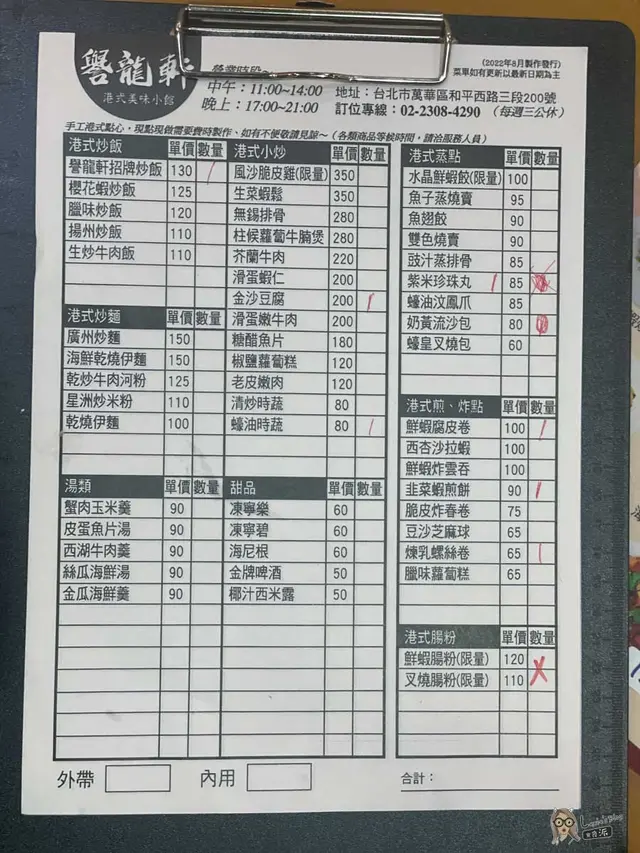 譽龍軒
港式美味小館
營業時段~
中午：11:00~14:00
晚上：17:00~21:00
(2022年8月製作發行)
菜單如有更新以最新日期為主
地址：台北市萬華區和平西路三段200號
訂位專線：02-2308-4290 (每週三公休)
手工港式點心，現點現做需要費時製作、如有不便敬請見諒～（各類商品等候時間，請洽服務人員）
港式炒飯 單價 數量
譽龍軒招牌炒飯 130 /
櫻花蝦炒飯 125
臘味炒飯 120
揚州炒飯 110
生炒牛肉飯 110
港式炒麵 單價 數量
廣州炒麵 150
海鮮乾燒伊麵 150
乾炒牛肉河粉 125
星洲炒米粉 110
乾燒伊麵 100
湯類 單價 數量
蟹肉玉米羹 90
皮蛋魚片湯 90
西湖牛肉羹 90
絲瓜海鮮湯 90
金瓜海鮮羹 90
港式小炒 單價 數量
風沙脆皮雞(限量) 350
生菜蝦鬆 350
無錫排骨 280
柱候蘿蔔牛腩煲 280
芥蘭牛肉 220
滑蛋蝦仁 200
金沙豆腐 200 /
滑蛋嫩牛肉 200
糖醋魚片 180
椒鹽蘿蔔糕 120
老皮嫩肉 120
清炒時蔬 80
蠔油時蔬 80 /
甜品 單價 數量
凍檸樂 60
凍寧碧 60
海尼根 60
金牌啤酒 50
椰汁西米露 50
港式蒸點 單價 數量
水晶鮮蝦餃(限量) 100
魚子蒸燒賣 95
魚翅餃 90
雙色燒賣 90
豉汁蒸排骨 85
紫米珍珠丸 / 85
蠔油汶鳳爪 85
奶黃流沙包 80
蠔皇叉燒包 60
港式煎、炸點 單價 數量
鮮蝦腐皮卷 100 /
西杏沙拉蝦 100
鮮蝦炸雲吞 100
韭菜蝦煎餅 90 /
脆皮炸春卷 75
豆沙芝麻球 65
煉乳螺絲卷 65 /
臘味蘿蔔糕 65
港式腸粉 單價 數量
鮮蝦腸粉(限量) 120
叉燒腸粉(限量) 110 X
外帶
內用
合計：